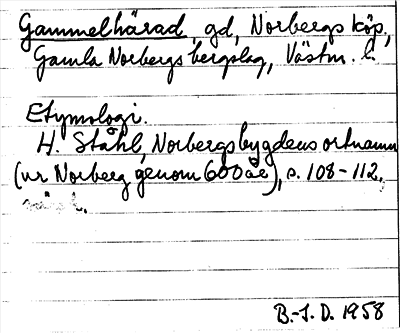 Gammelhärad, gd, Norbergs köp,
Gamla Norbergs bergslag, Västm. l.
Etymologi.
H. Ståhl, Norbergsbygdens ortnamn
(ur Norberg genom 600 år), s. 108-112.
B.-I. D. 1958